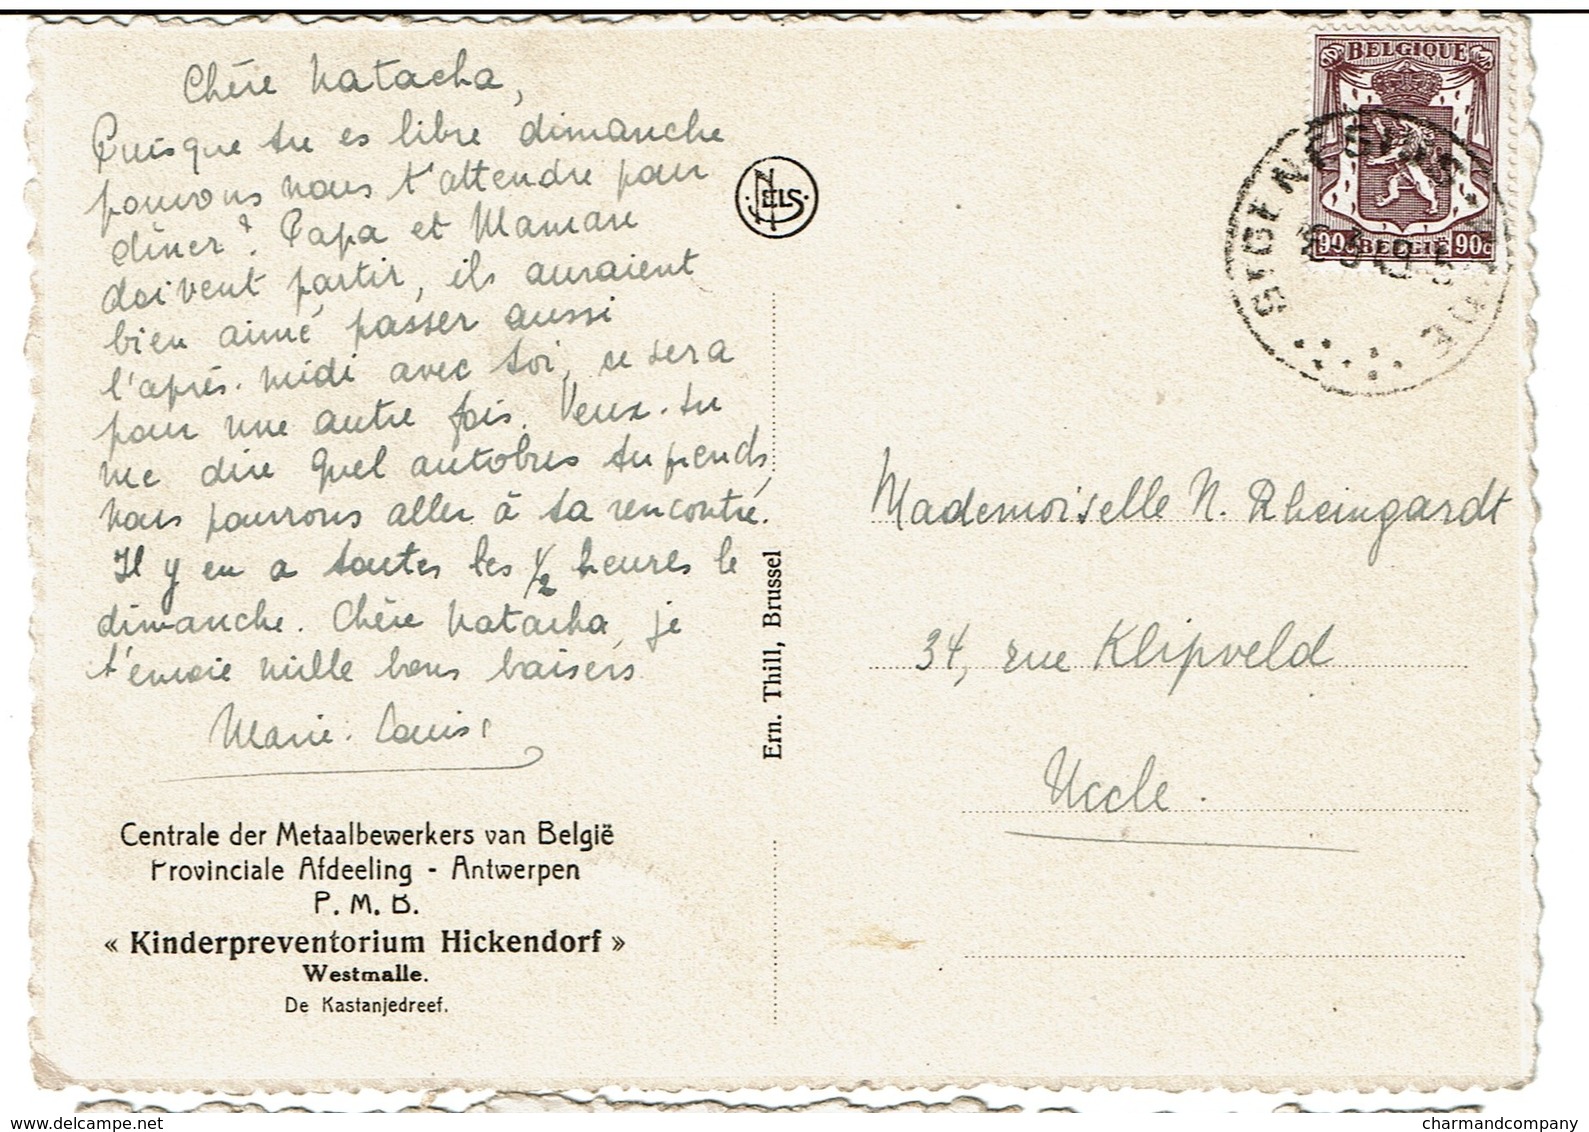 Chère Natacha,
Puisque tu es libre dimanche
pouvons nous t'attendre pour
dîner? Papa et Maman
doivent partir, ils auraient
bien aimé passer aussi
l'après-midi avec toi, ce sera
pour une autre fois. Veux-tu
me dire quel autobus tu prends,
nous pourrons aller à ta rencontre.
Il y en a toutes les 1/2 heures le
dimanche. Chère Natacha, je
t'envoie mille bons baisers
Marie-Louise
Centrale der Metaalbewerkers van België
Provinciale Afdeeling - Antwerpen
P. M. B.
« Kinderpreventorium Hickendorf »
Westmalle.
De Kastanjedreef.
NELS
Ern. Thill, Brussel
BELGIQUE
90c BELGIË 90c
Mademoiselle N. Rheingardt
34, rue Klipveld
Uccle.
delcampe.net
charmandcompany